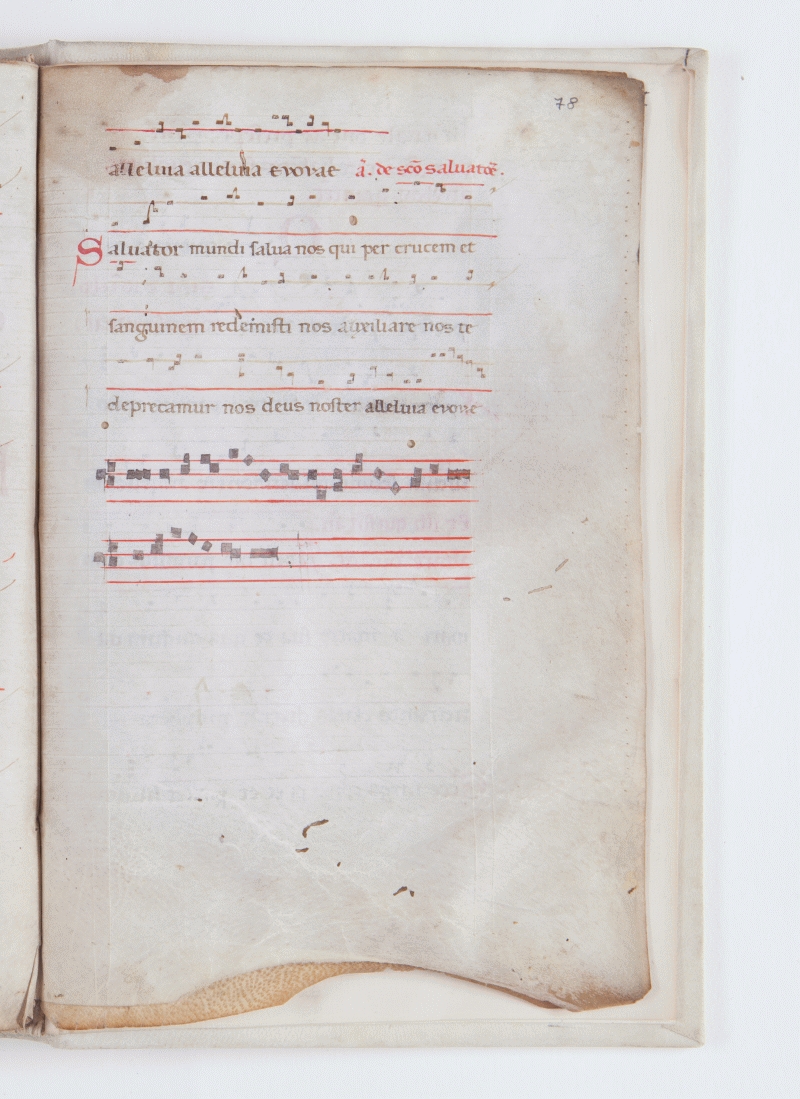 78
alleluia alleluia evovae ã. de scõ saluatoẽ.
Saluator mundi salua nos qui per crucem et
sanguinem redemisti nos auxiliare nos te
deprecamur nos deus noster alleluia evovae